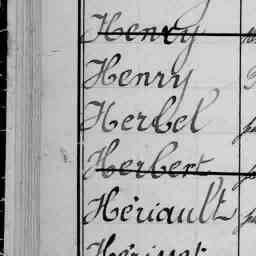 Henry
Henry
Herbel
Herbert
Hériault